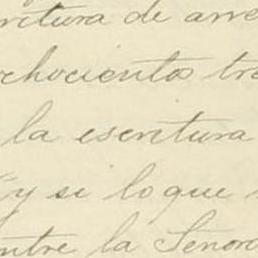 critura de arre
ochocientos tr
la escritura
"y si lo que
entre la Señora